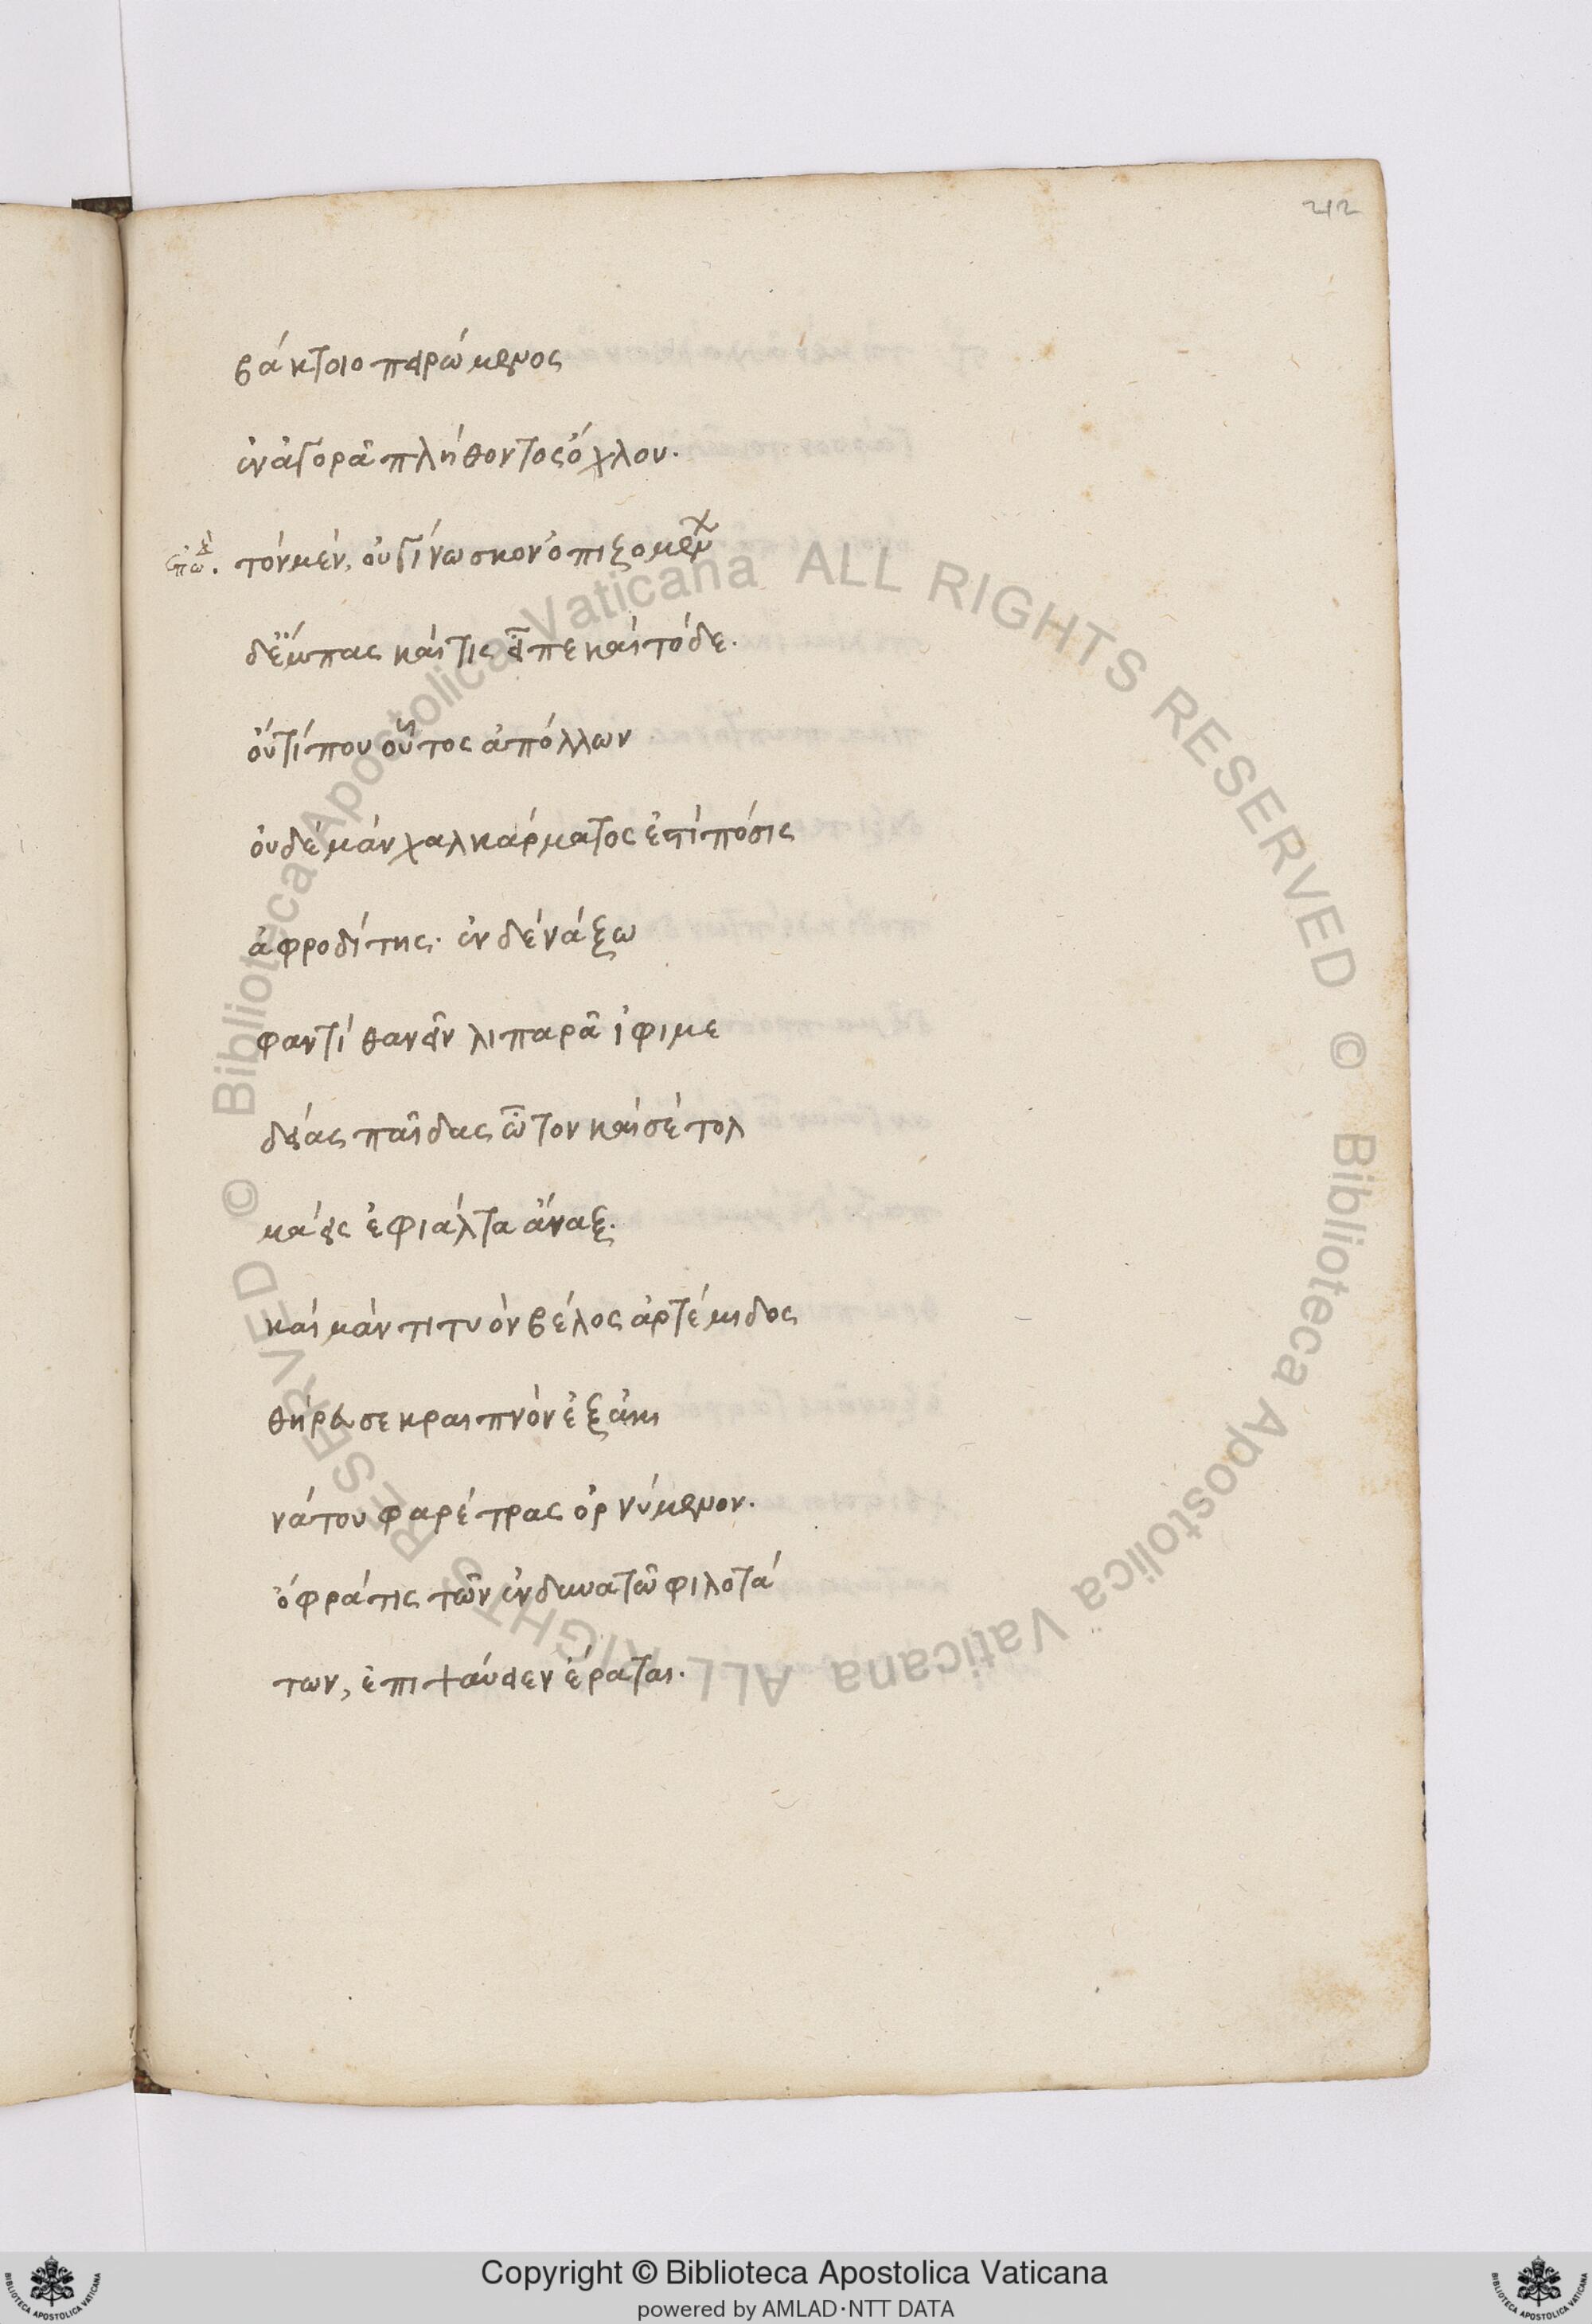 212
βάκτοιο πειρώμενος
ἐν ἀγορᾶ πλήθοντος ὄχλου.
ἐπω. τὸν μὲν, οὐ γίνωσκον ὀπιζομένων
δ' ἔμπας καί τις εἶπε καὶ τόδε.
οὔ τί που οὗτος ἀπόλλων
οὐδὲ μὰν χαλκάρματος ἐστὶ πόσις
ἀφροδίτης. ἐν δὲ νάξω
φαντὶ θανεῖν λιπαρᾶ ἰφιμε
δείας παῖδας ὦτον καὶ σὲ τολ
μάεις ἐφιάλτα ἄναξ.
καὶ μὰν τιτυὸν βέλος ἀρτέμιδος
θήρευσε κραιπνὸν ἐξ ἀνι
νάτου φαρέτρας ὀρνύμενον.
ὄφρά τις τῶν ἐν δυνατῶ φιλοτά
των, ἐπιψαύειεν ἔραται.
© Biblioteca Apostolica Vaticana ALL RIGHTS RESERVED © Biblioteca Apostolica Vaticana ALL RIGHTS RESERVED
Copyright © Biblioteca Apostolica Vaticana
powered by AMLAD·NTT DATA
BIBLIOTECA APOSTOLICA VATICANA
BIBLIOTECA APOSTOLICA VATICANA